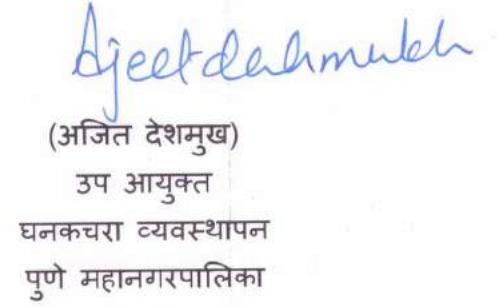 Ajeet deshmukh
(अजित देशमुख)
उप आयुक्त
घनकचरा व्यवस्थापन
पुणे महानगरपालिका